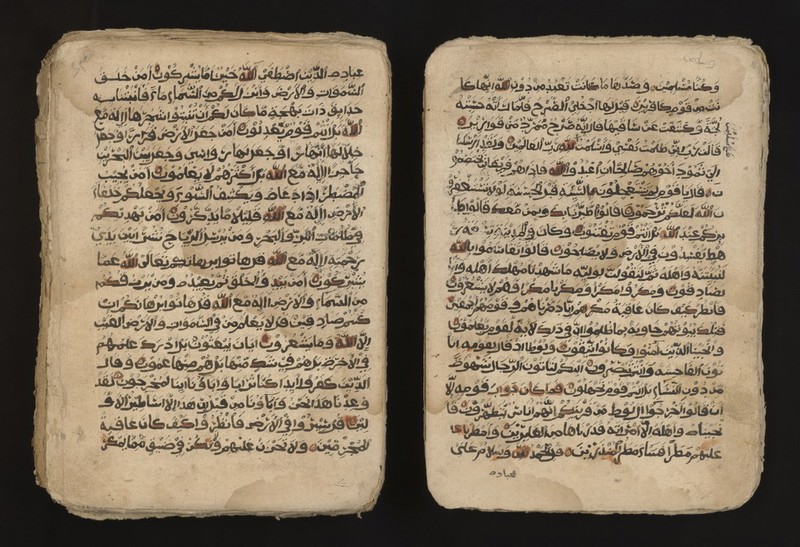 وكنا مسلمين وصدها ما كانت تعبد من دون الله انها كا
نت من قوم كافرين قيل لها ادخلي الصرح فلما راته حسبته
لجة وكشفت عن ساقيها قال انه صرح ممرد من قوارير
قالت رب اني ظلمت نفسي واسلمت لله رب العالمين ولقد ارسلنا
الى ثمود اخوهم صالحا ان اعبدوا الله فاذا هم فريقان يختصمو
ن قال يا قوم لم تستعجلون بالسيئة قبل الحسنة لولا تستغفرو
ن الله لعلكم ترحمون قالوا اطيرنا بك وبمن معك قال طا
ئركم عند الله بل انتم قوم تفتنون وكان في المدينة تسعة ر
هط يفسدون في الارض ولا يصلحون قالوا تقاسموا بالله
لنبيتنه واهله ثم لنقولن لوليه ما شهدنا مهلك اهله وانا
لصادقون ومكروا مكرا ومكرنا مكرا وهم لا يشعرون
فانظر كيف كان عاقبة مكرهم انا دمرناهم وقومهم اجمعين
فتلك بيوتهم خاوية بما ظلموا ان في ذلك لاية لقوم يعلمون
وانجينا الذين امنوا وكانوا يتقون ولوطا اذ قال لقومه اتا
تون الفاحشة وانتم تبصرون ائنكم لتاتون الرجال شهوة
من دون النساء بل انتم قوم تجهلون فما كان جواب قومه الا
ان قالوا اخرجوا ال لوط من قريتكم انهم اناس يتطهرون فا
نجيناه واهله الا امراته قدرناها من الغابرين وامطرنا
عليهم مطرا فساء مطر المنذرين قل الحمد لله وسلام على
عباده
عباده الذين اصطفى الله خير اما يشركون امن خلق
السموات والارض وانزل لكم من السماء ماء فانبتنا به
حدائق ذات بهجة ما كان لكم ان تنبتوا شجرها االه مع
الله بل هم قوم يعدلون امن جعل الارض قرارا وجعل
خلالها انهارا وجعل لها رواسي وجعل بين البحرين
حاجزا االه مع الله بل اكثرهم لا يعلمون امن يجيب
المضطر اذا دعاه ويكشف السوء ويجعلكم خلفاء
الارض االه مع الله قليلا ما تذكرون امن يهديكم
في ظلمات البر والبحر ومن يرسل الرياح نشرا بين يدي
رحمته االه مع الله تعالى الله عما
يشركون امن يبدؤ الخلق ثم يعيده ومن يرزقكم
من السماء والارض االه مع الله قل هاتوا برهانكم ان
كنتم صادقين قل لا يعلم من في السموات والارض الغيب
الا الله وما يشعرون ايان يبعثون بل ادرك علمهم
في الاخرة بل هم في شك منها بل هم منها عمون وقال
الذين كفروا ائذا كنا ترابا واباؤنا ائنا لمخرجون لقد
وعدنا هذا نحن واباؤنا من قبل ان هذا الا اساطير الاو
لين قل سيروا في الارض فانظروا كيف كان عاقبة
المجرمين ولا تحزن عليهم ولا تكن في ضيق مما يمكر